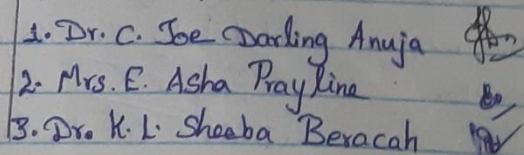 1. Dr. C. Joe Darling Anuja
2. Mrs. E. Asha Prayline
3. Dr. K. L. Sheeba Beracah